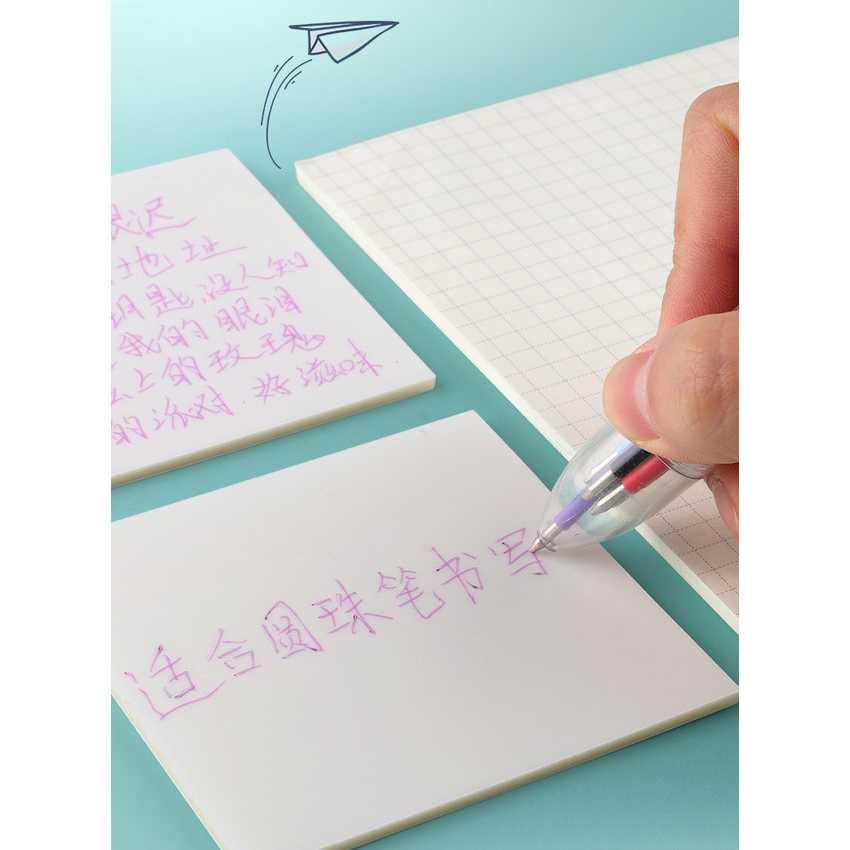 很迟
地址
钥匙没人知
我的眼泪
上的玫瑰
的派对.好滋味.
适合圆珠笔书写